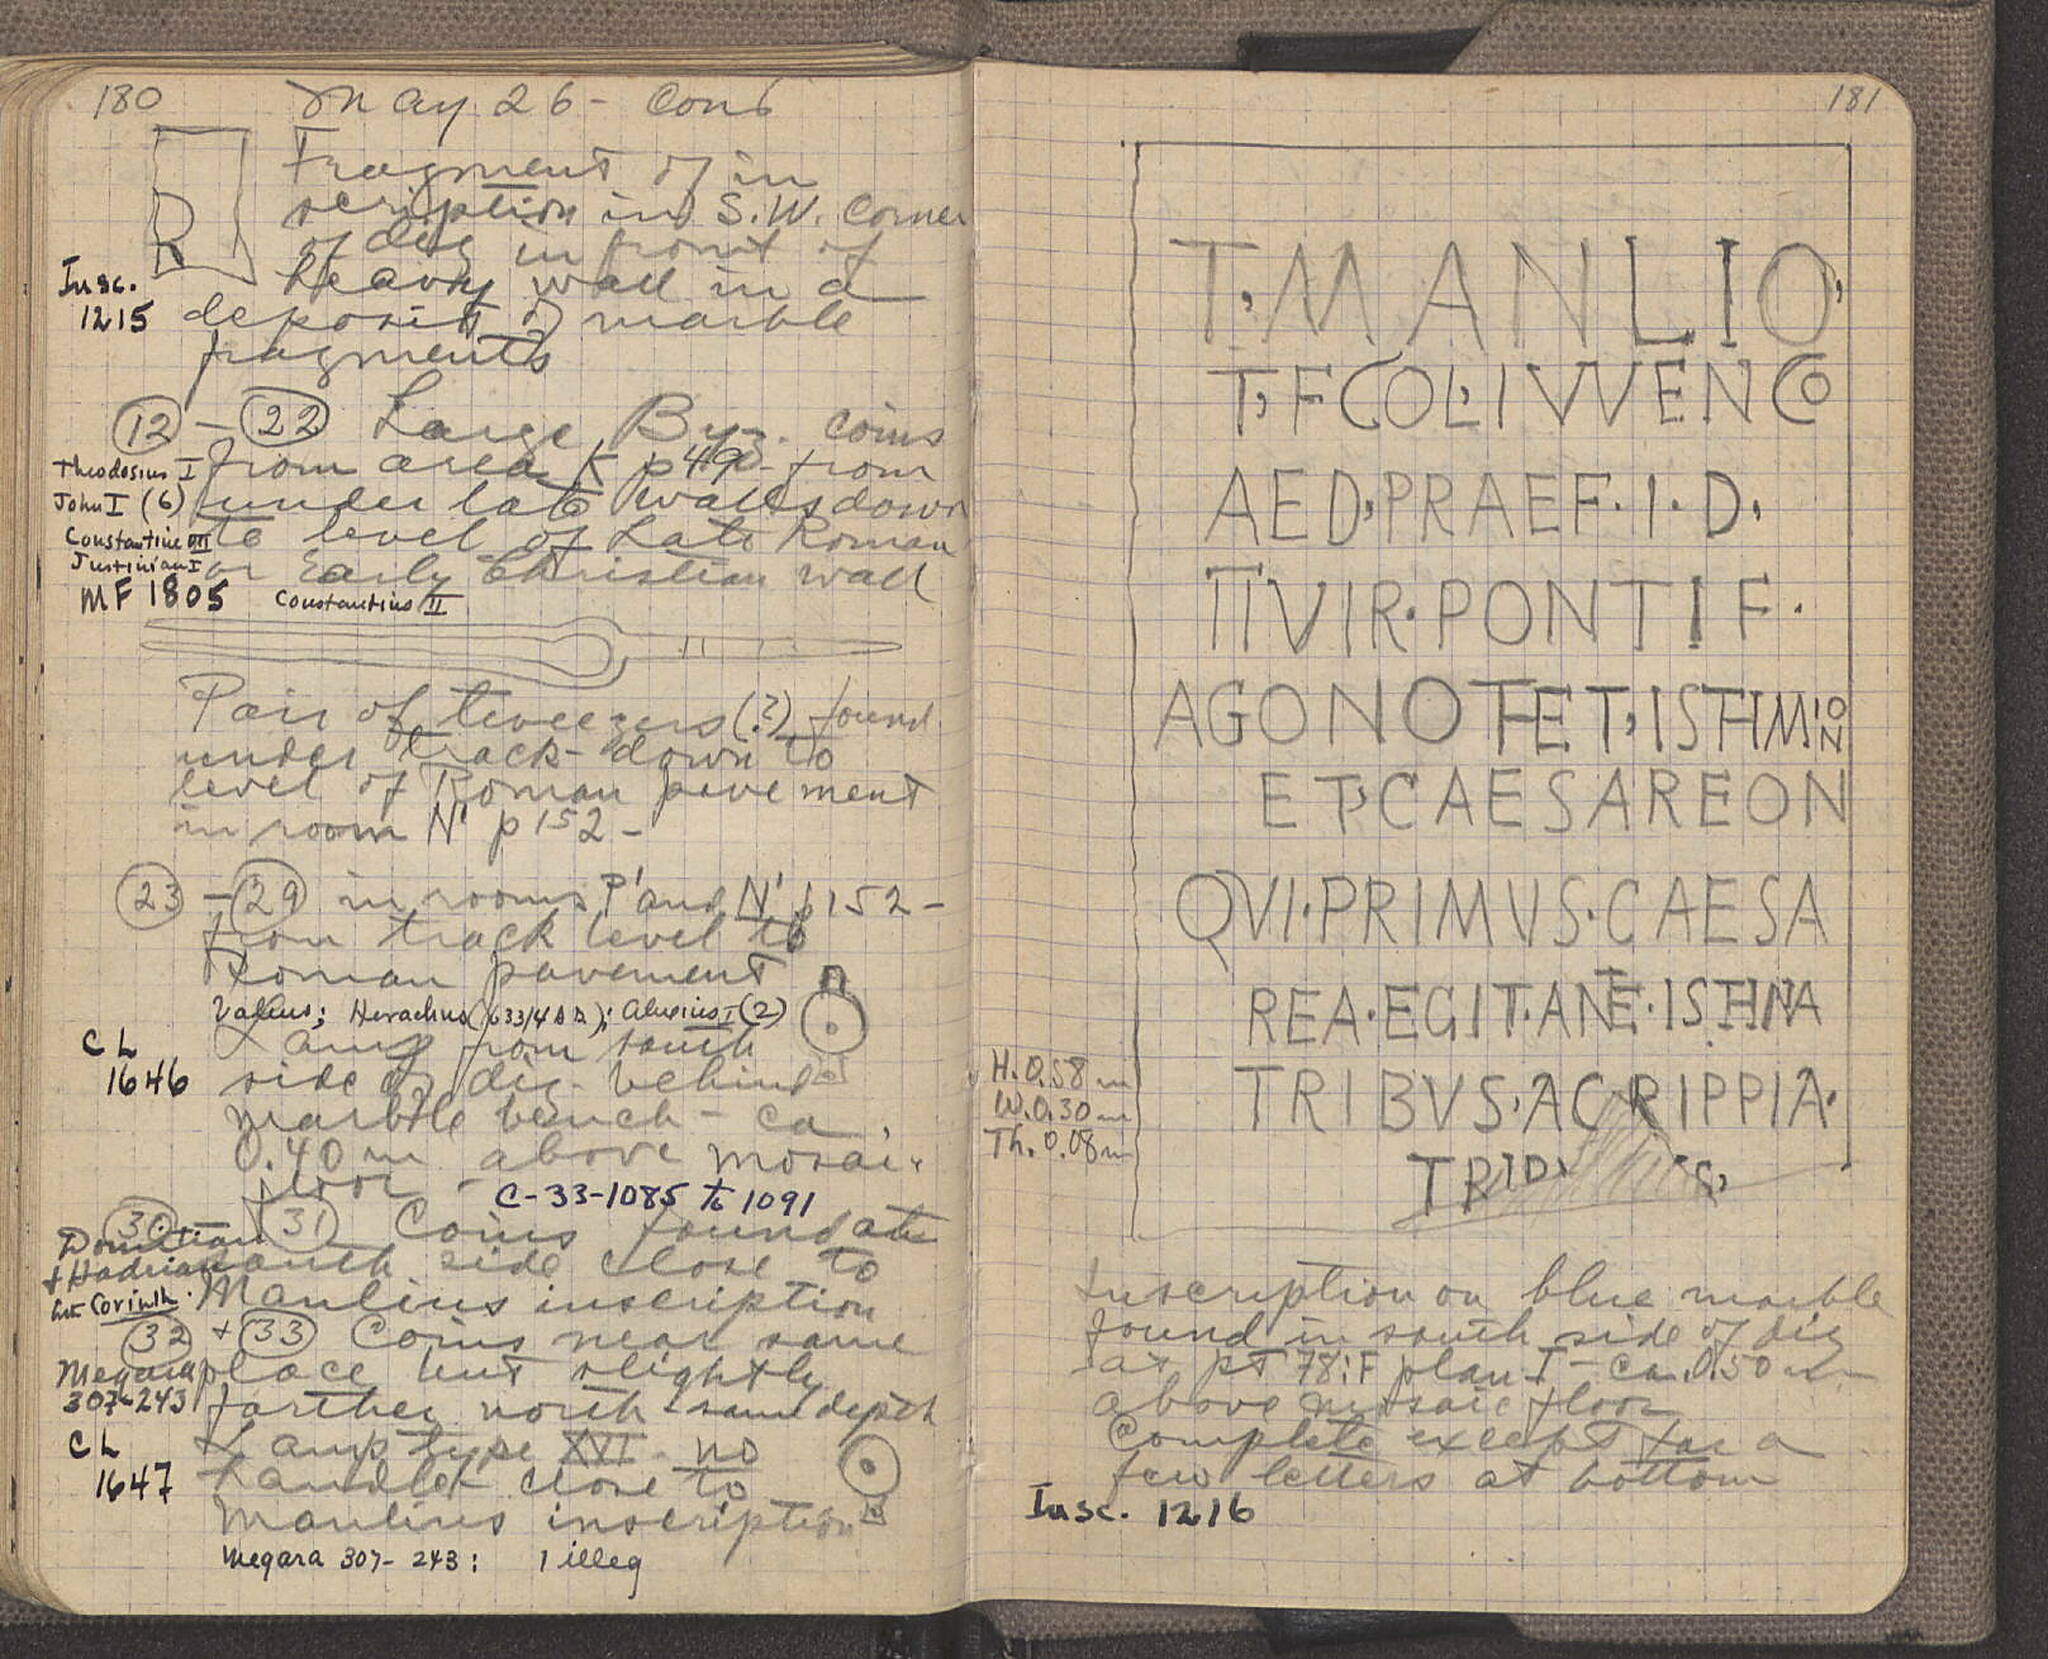 180 May 26 - Cont
Fragment of in
scription in S.W. Corner
R
of dig in front of
Insc. heavy wall in a
1215 deposit of marble
fragments
12 - 22 Large Byz. coins
Theodosius I from area K p 49 - from
John I (6) under late walls down
Constantine VII to level of Late Roman
Justinian I or Early Christian wall
MF 1805 Constantius II
Pair of tweezers (?) found
under track - down to
level of Roman pavement
in room N' p 152 -
23 - 29 in rooms P' and N' p 152 -
from track level to
Roman pavement
Valens; Heraclius (633/4 A.D.); Alexius I (2)
CL Lamp from south
1646 side of dig - behind
marble bench - ca.
0.40 m above mosaic
floor - C-33-1085 to 1091
30 31 Coins found at
Domitian south side close to
+ Hadrian Manlius inscription
Corinth.
32 + 33 Coins near same
Megara place but slightly
307-243 farther north - same depth
CL Lamp type XVI - no
1647 handle - close to
Manlius inscription
Megara 307-243: 1 illeg
181
T, MANLIO,
T, F COL, IVVENCO
AED, PRAEF · I · D,
IIVIR · PONTIF ·
AGONOTHET, ISTHMION
ET, CAESAREON
QVI · PRIMVS · CAESA
REA · EGIT · ANTE · ISTHMIA
H. 0.58 m
TRIBVS, AGRIPPIA ·
W. 0.30 m
Th. 0.08 m
TRID, S,
Inscription on blue marble
found in south side of dig
at pt 78:F plan I - ca. 0.50 m
above mosaic floor
Complete except for a
few letters at bottom
Insc. 1216